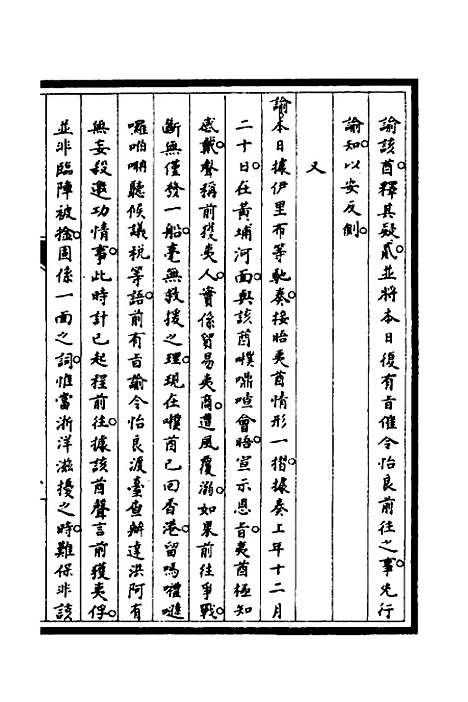 諭該酋釋其疑貳並將本日復有旨催令怡良前往之事先行
諭知以安反側
又
諭本日據伊里布等馳奏接晤夷酋情形一摺據奏上年十二月
二十日在黃埔河面與該酋㗋㗋喳會晤宣示恩旨夷酋極知
感戴聲稱前獲夷人實係貿易夷商遭風覆溺如果前往爭戰
斷無僅發一船毫無救援之理現在㗋酋已回香港留嗎𡅏𠺕
囉咱𠳐聽候議稅等語前有旨諭令怡良渡臺查辦達洪阿有
無妄殺邀功情事此時計已起程前往據該酋聲言前獲夷俘
並非臨陣被擒固係一面之詞惟當浙洋滋擾之時難保非該